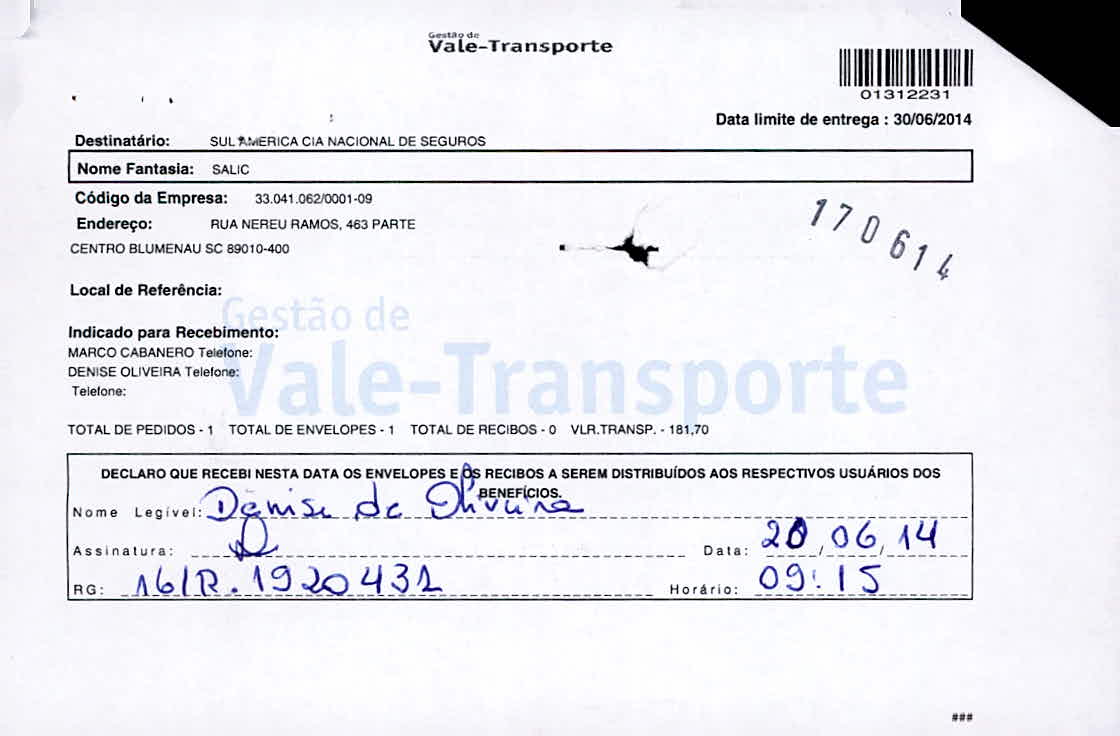 Gestão de
Vale-Transporte
01312231
Data limite de entrega : 30/06/2014
Destinatário: SUL AMERICA CIA NACIONAL DE SEGUROS
Nome Fantasia: SALIC
Código da Empresa: 33.041.062/0001-09
Endereço: RUA NEREU RAMOS, 463 PARTE
170614
CENTRO BLUMENAU SC 89010-400
Local de Referência:
Gestão de
Indicado para Recebimento:
MARCO CABANERO Telefone:
Vale-Transporte
DENISE OLIVEIRA Telefone:
Telefone:
TOTAL DE PEDIDOS - 1 TOTAL DE ENVELOPES - 1 TOTAL DE RECIBOS - 0 VLR.TRANSP. - 181,70
DECLARO QUE RECEBI NESTA DATA OS ENVELOPES E OS RECIBOS A SEREM DISTRIBUÍDOS AOS RESPECTIVOS USUÁRIOS DOS
BENEFÍCIOS.
Nome Legível: Denise de Oliveira
Assinatura: Data: 20/06/14
RG: 16/R.1920432 Horário: 09:15
###